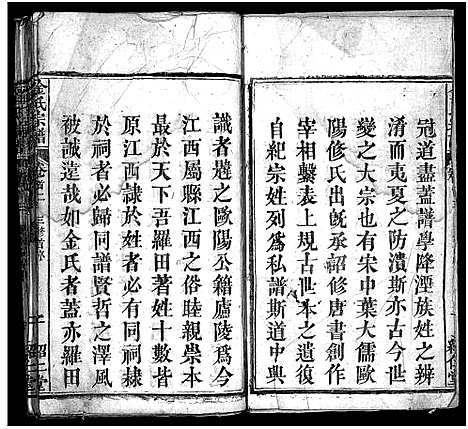 冠道盡蓋譜學降湮族姓之辨
淆而夷夏之防潰斯亦古今之
變之大宗也有宋中葉大儒歐
陽修氏出旣承詔修唐書創作
宰相繫表上規古世本之遺復
自紀宗姓列爲私譜斯道中興
識者韙之歐陽公籍廬陵爲今
江西屬縣江西之俗睦親崇本
最於天下吾羅田著姓十數皆
原江西隸於姓者必有同祠隸
於祠者必歸同譜賢哲之澤風
被誠遠哉如金氏者蓋亦羅田
金氏宗譜
卷首二